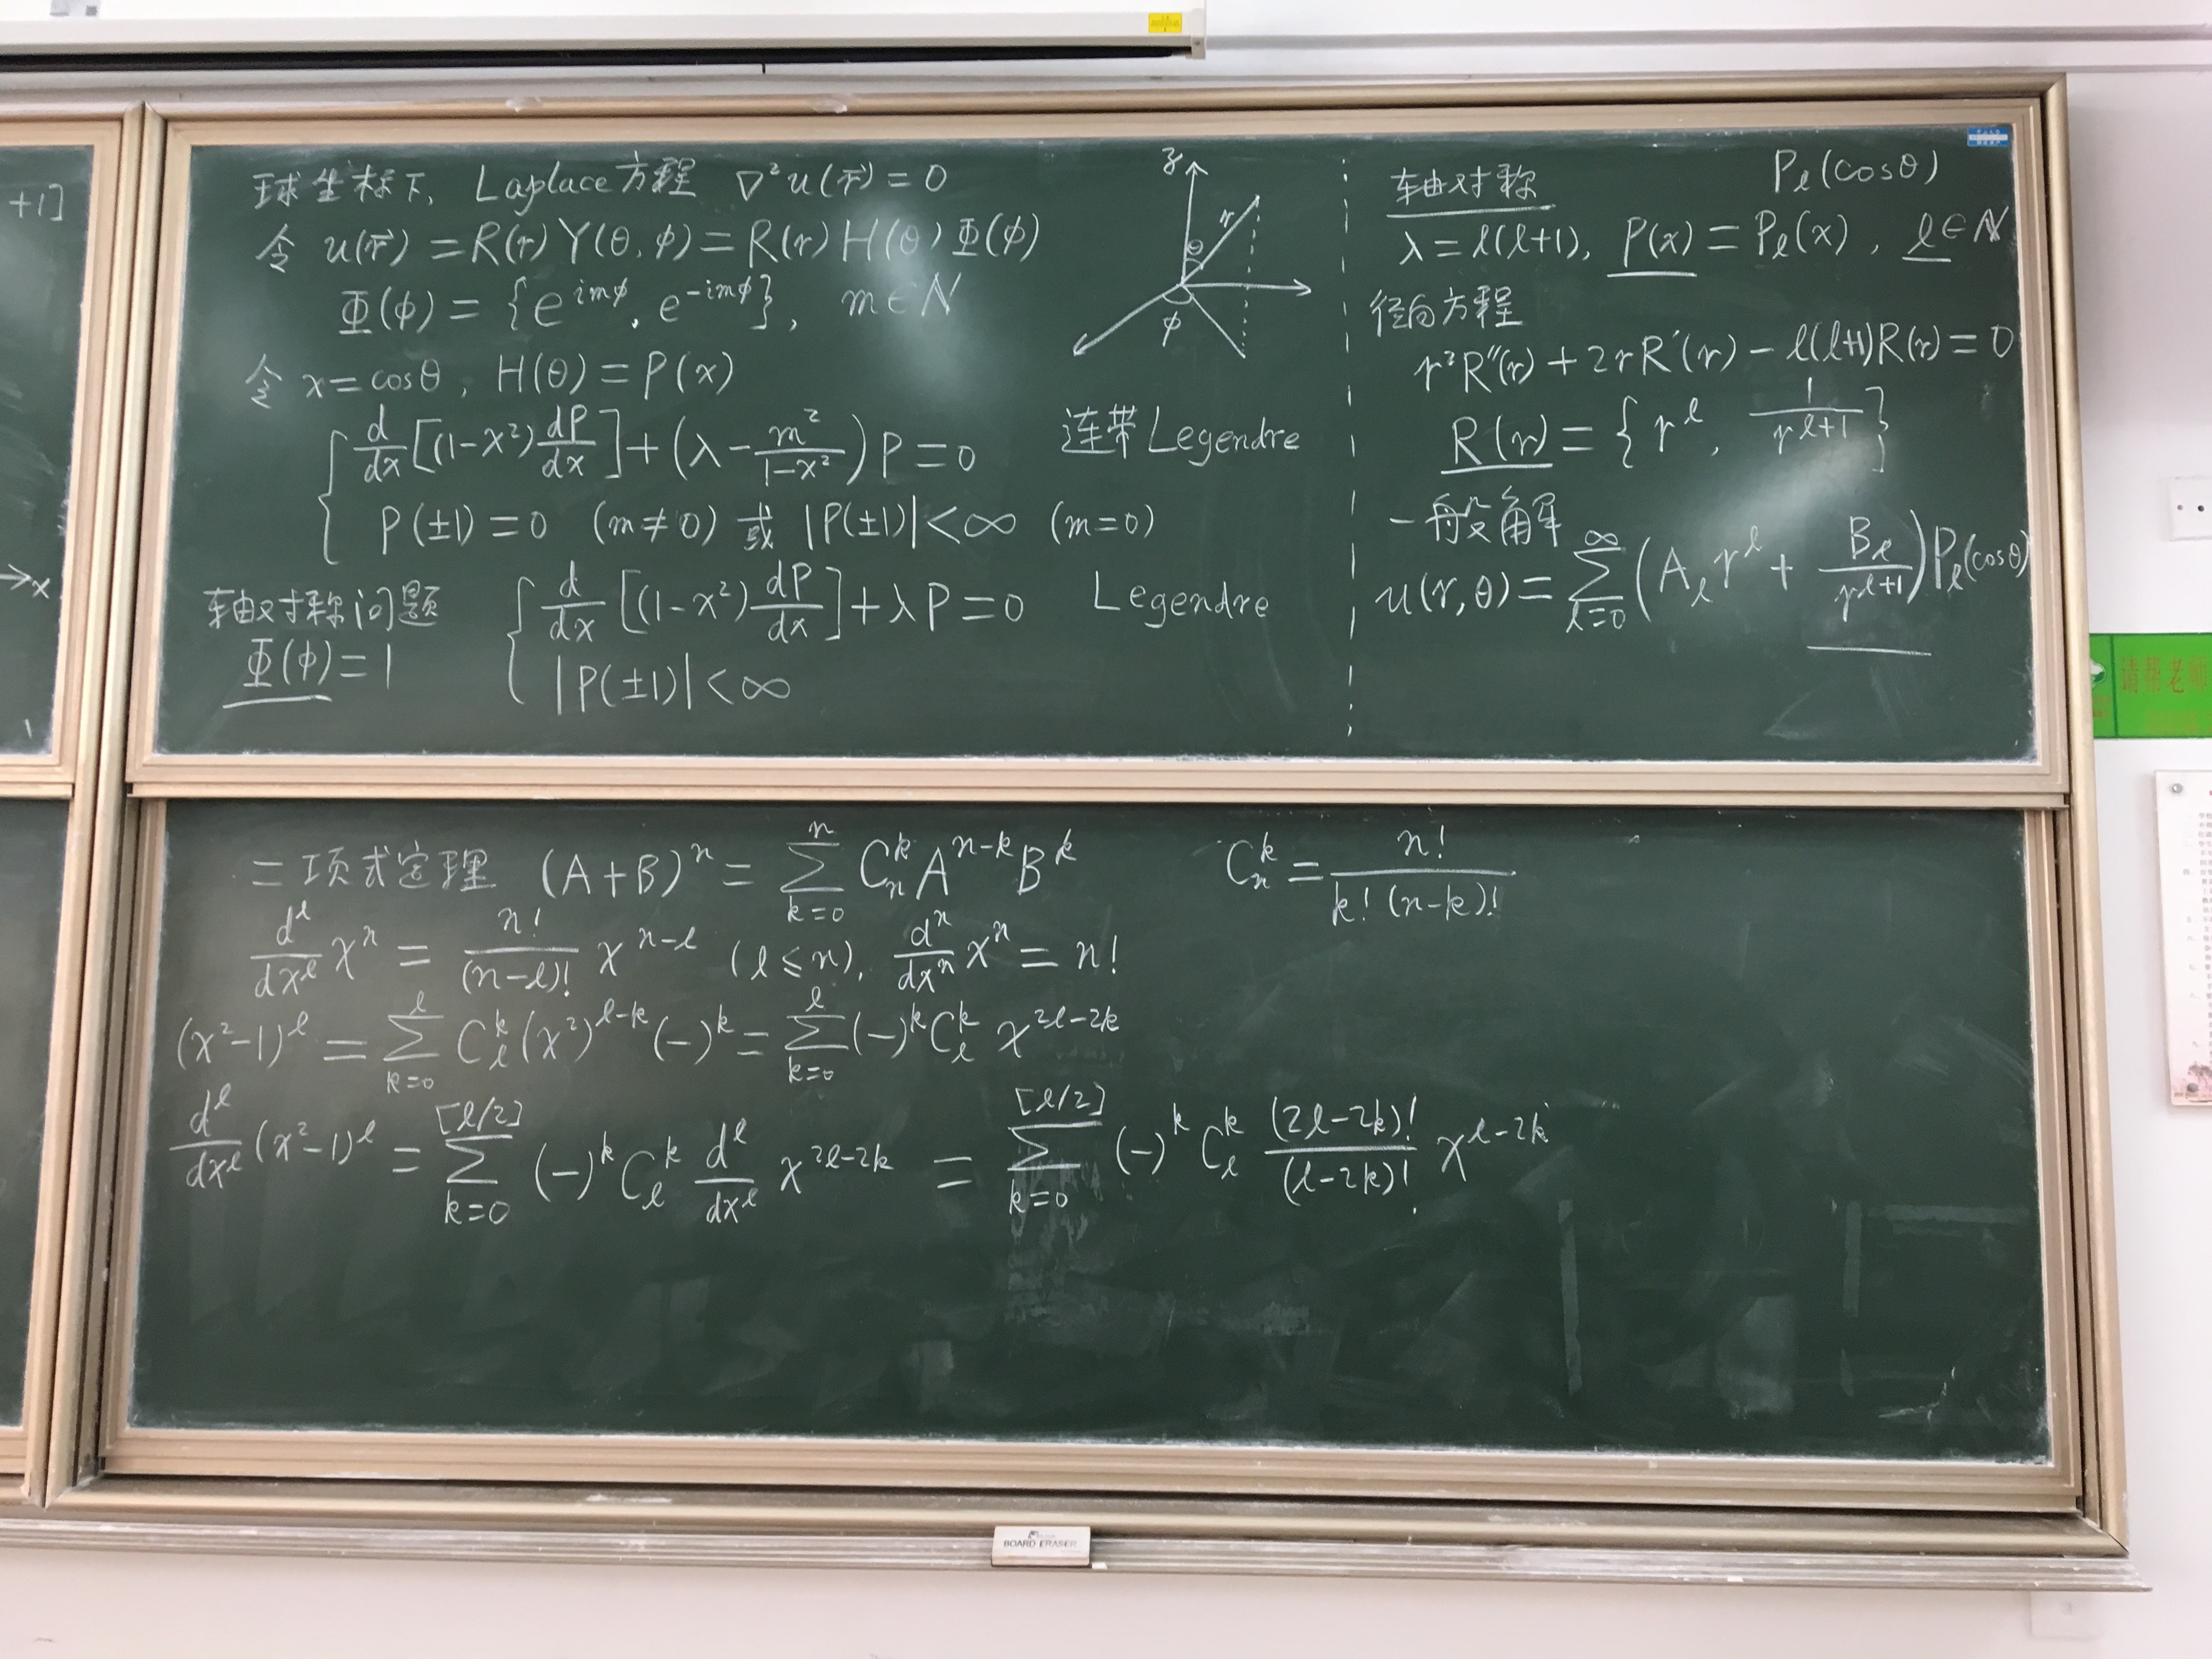 +1]
→x
球坐标下, Laplace方程 ∇²u(r⃗) = 0
令 u(r⃗) = R(r)Y(θ,φ) = R(r)H(θ)Φ(φ)
Φ(φ) = {e^{imφ}, e^{-imφ}}, m∈N
令 x = cosθ, H(θ) = P(x)
d/dx[(1-x²)dP/dx] + (λ - m²/(1-x²))P = 0 连带Legendre
P(±1) = 0 (m≠0) 或 |P(±1)| < ∞ (m=0)
轴对称问题 d/dx[(1-x²)dP/dx] + λP = 0 Legendre
Φ(φ) = 1 |P(±1)| < ∞
z
r
θ
φ
轴对称 P_ℓ(cosθ)
λ = ℓ(ℓ+1), P(x) = P_ℓ(x), ℓ∈N
径向方程
r²R″(r) + 2rR′(r) - ℓ(ℓ+1)R(r) = 0
R(r) = {r^ℓ, 1/r^{ℓ+1}}
一般解
u(r,θ) = ∑_{ℓ=0}^{∞}(A_ℓ r^ℓ + B_ℓ/r^{ℓ+1})P_ℓ(cosθ)
二项式定理 (A+B)^n = ∑_{k=0}^{n} C_n^k A^{n-k} B^k C_n^k = n!/(k!(n-k)!)
d^ℓ/dx^ℓ x^n = n!/(n-ℓ)! x^{n-ℓ} (ℓ≤n), d^n/dx^n x^n = n!
(x²-1)^ℓ = ∑_{k=0}^{ℓ} C_ℓ^k (x²)^{ℓ-k} (-)^k = ∑_{k=0}^{ℓ} (-)^k C_ℓ^k x^{2ℓ-2k}
d^ℓ/dx^ℓ (x²-1)^ℓ = ∑_{k=0}^{[ℓ/2]} (-)^k C_ℓ^k d^ℓ/dx^ℓ x^{2ℓ-2k} = ∑_{k=0}^{[ℓ/2]} (-)^k C_ℓ^k (2ℓ-2k)!/(ℓ-2k)! x^{ℓ-2k}
请帮老师
BOARD ERASER